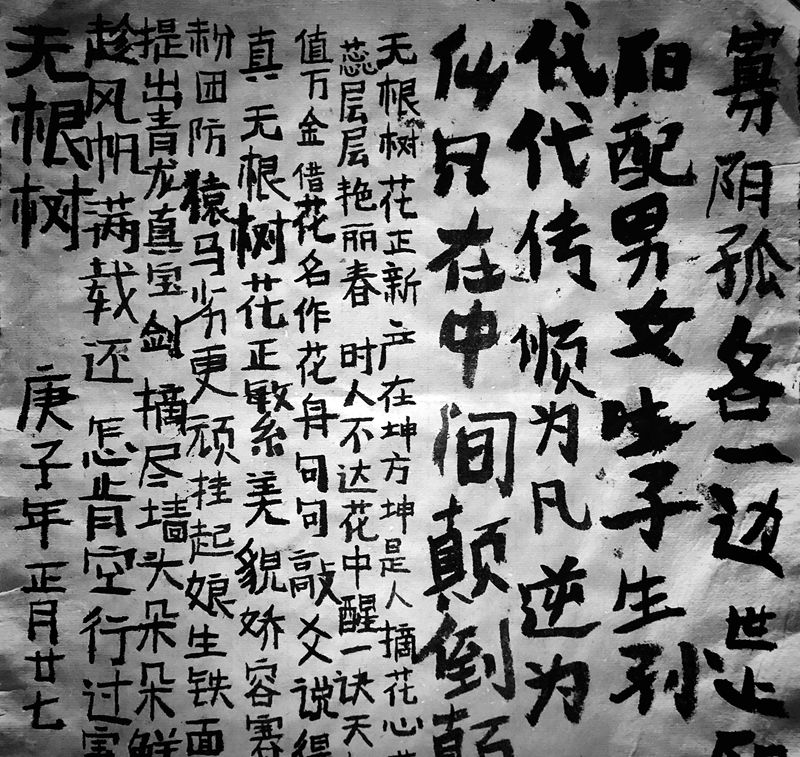 寡阴孤各一边 世上阴
阳配男女生子生孙
代代传 顺为凡逆为
仙只在中间颠倒颠
无根树花正新 产在坤方坤是人 摘花心
蕊层层艳丽春 时人不达花中醒一诀天
值万金 借花名作花身句句敲爻说得
真 无根树花正繁美貌娇容赛
粉团防猿马劣更顽挂起娘生铁面
提出青龙真宝剑 摘尽墙头朵朵鲜
趁风帆满载还 怎肯空行过宝
无根树 庚子年正月廿七